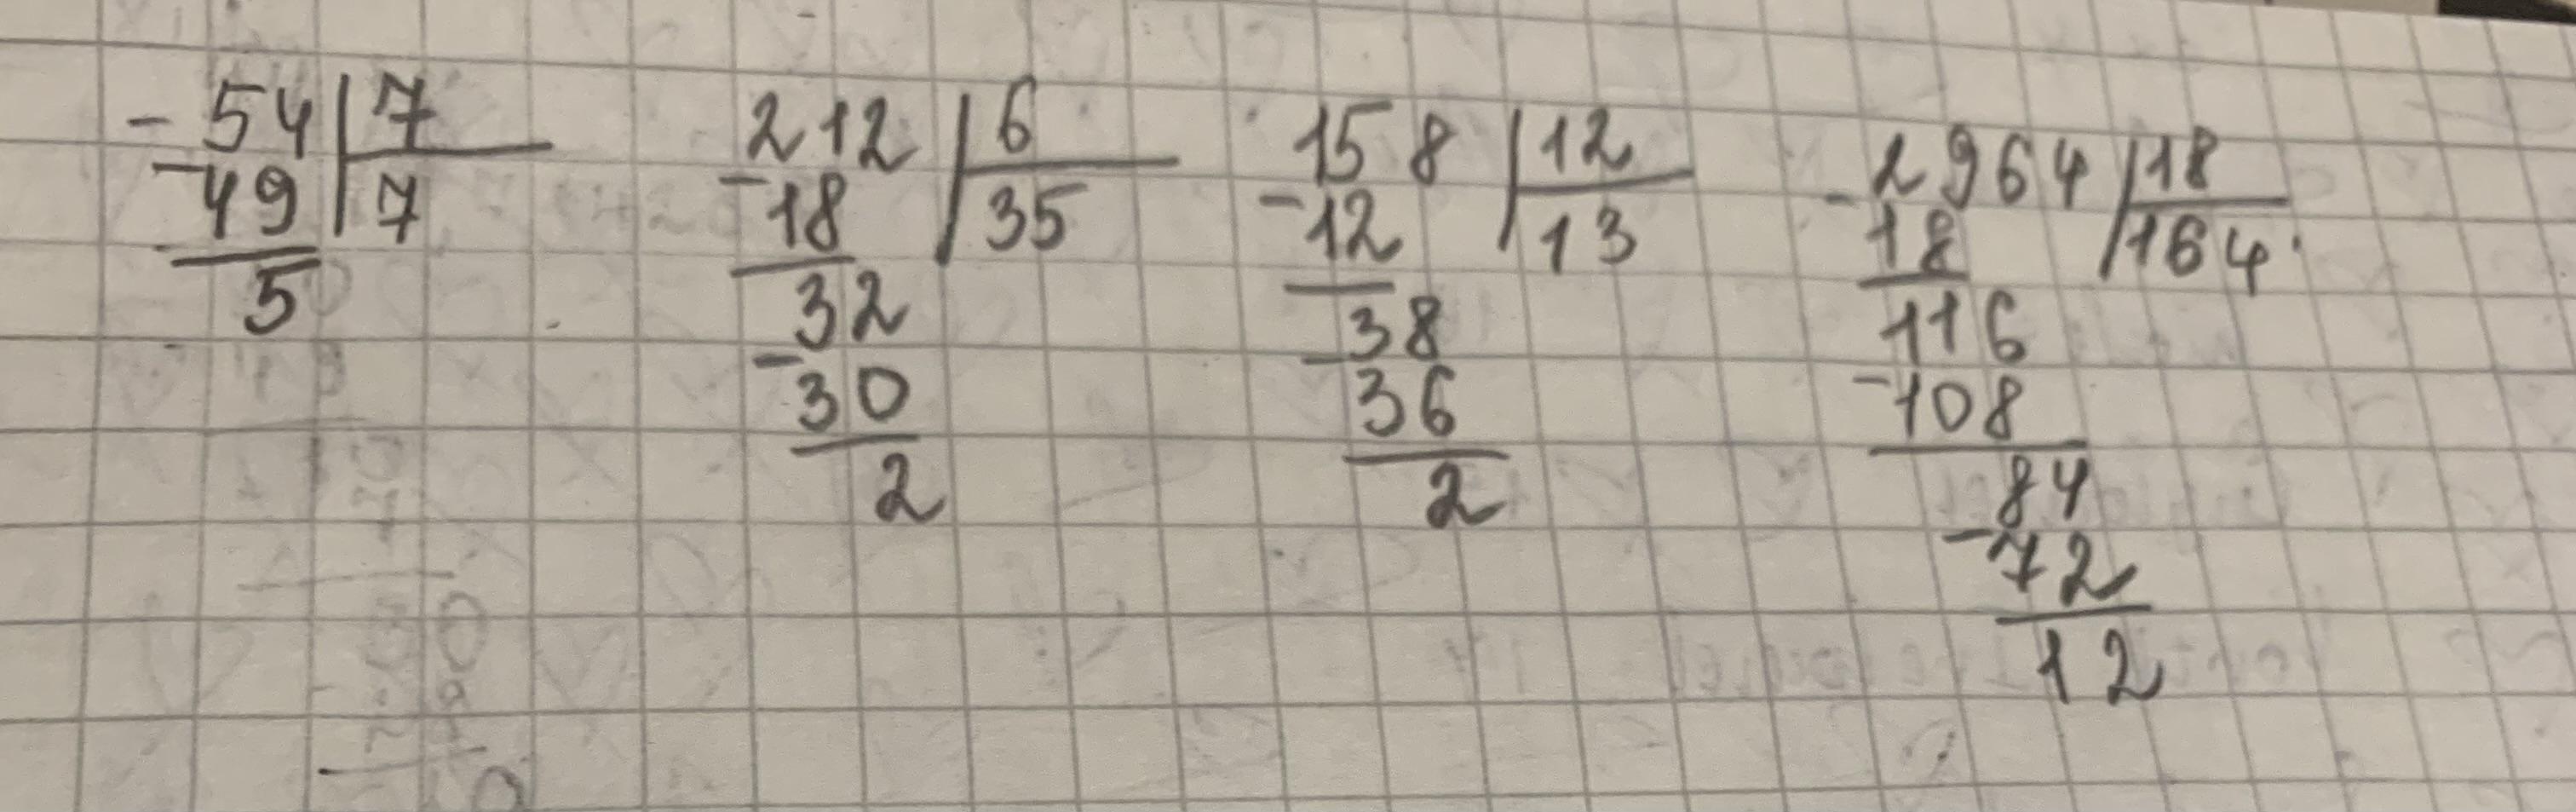 - 54 | 7
- 49 | 7
5
212 | 6
- 18 | 35
32
- 30
2
158 | 12
- 12 | 13
38
- 36
2
- 2964 | 18
18 | 164
116
- 108
84
- 72
12